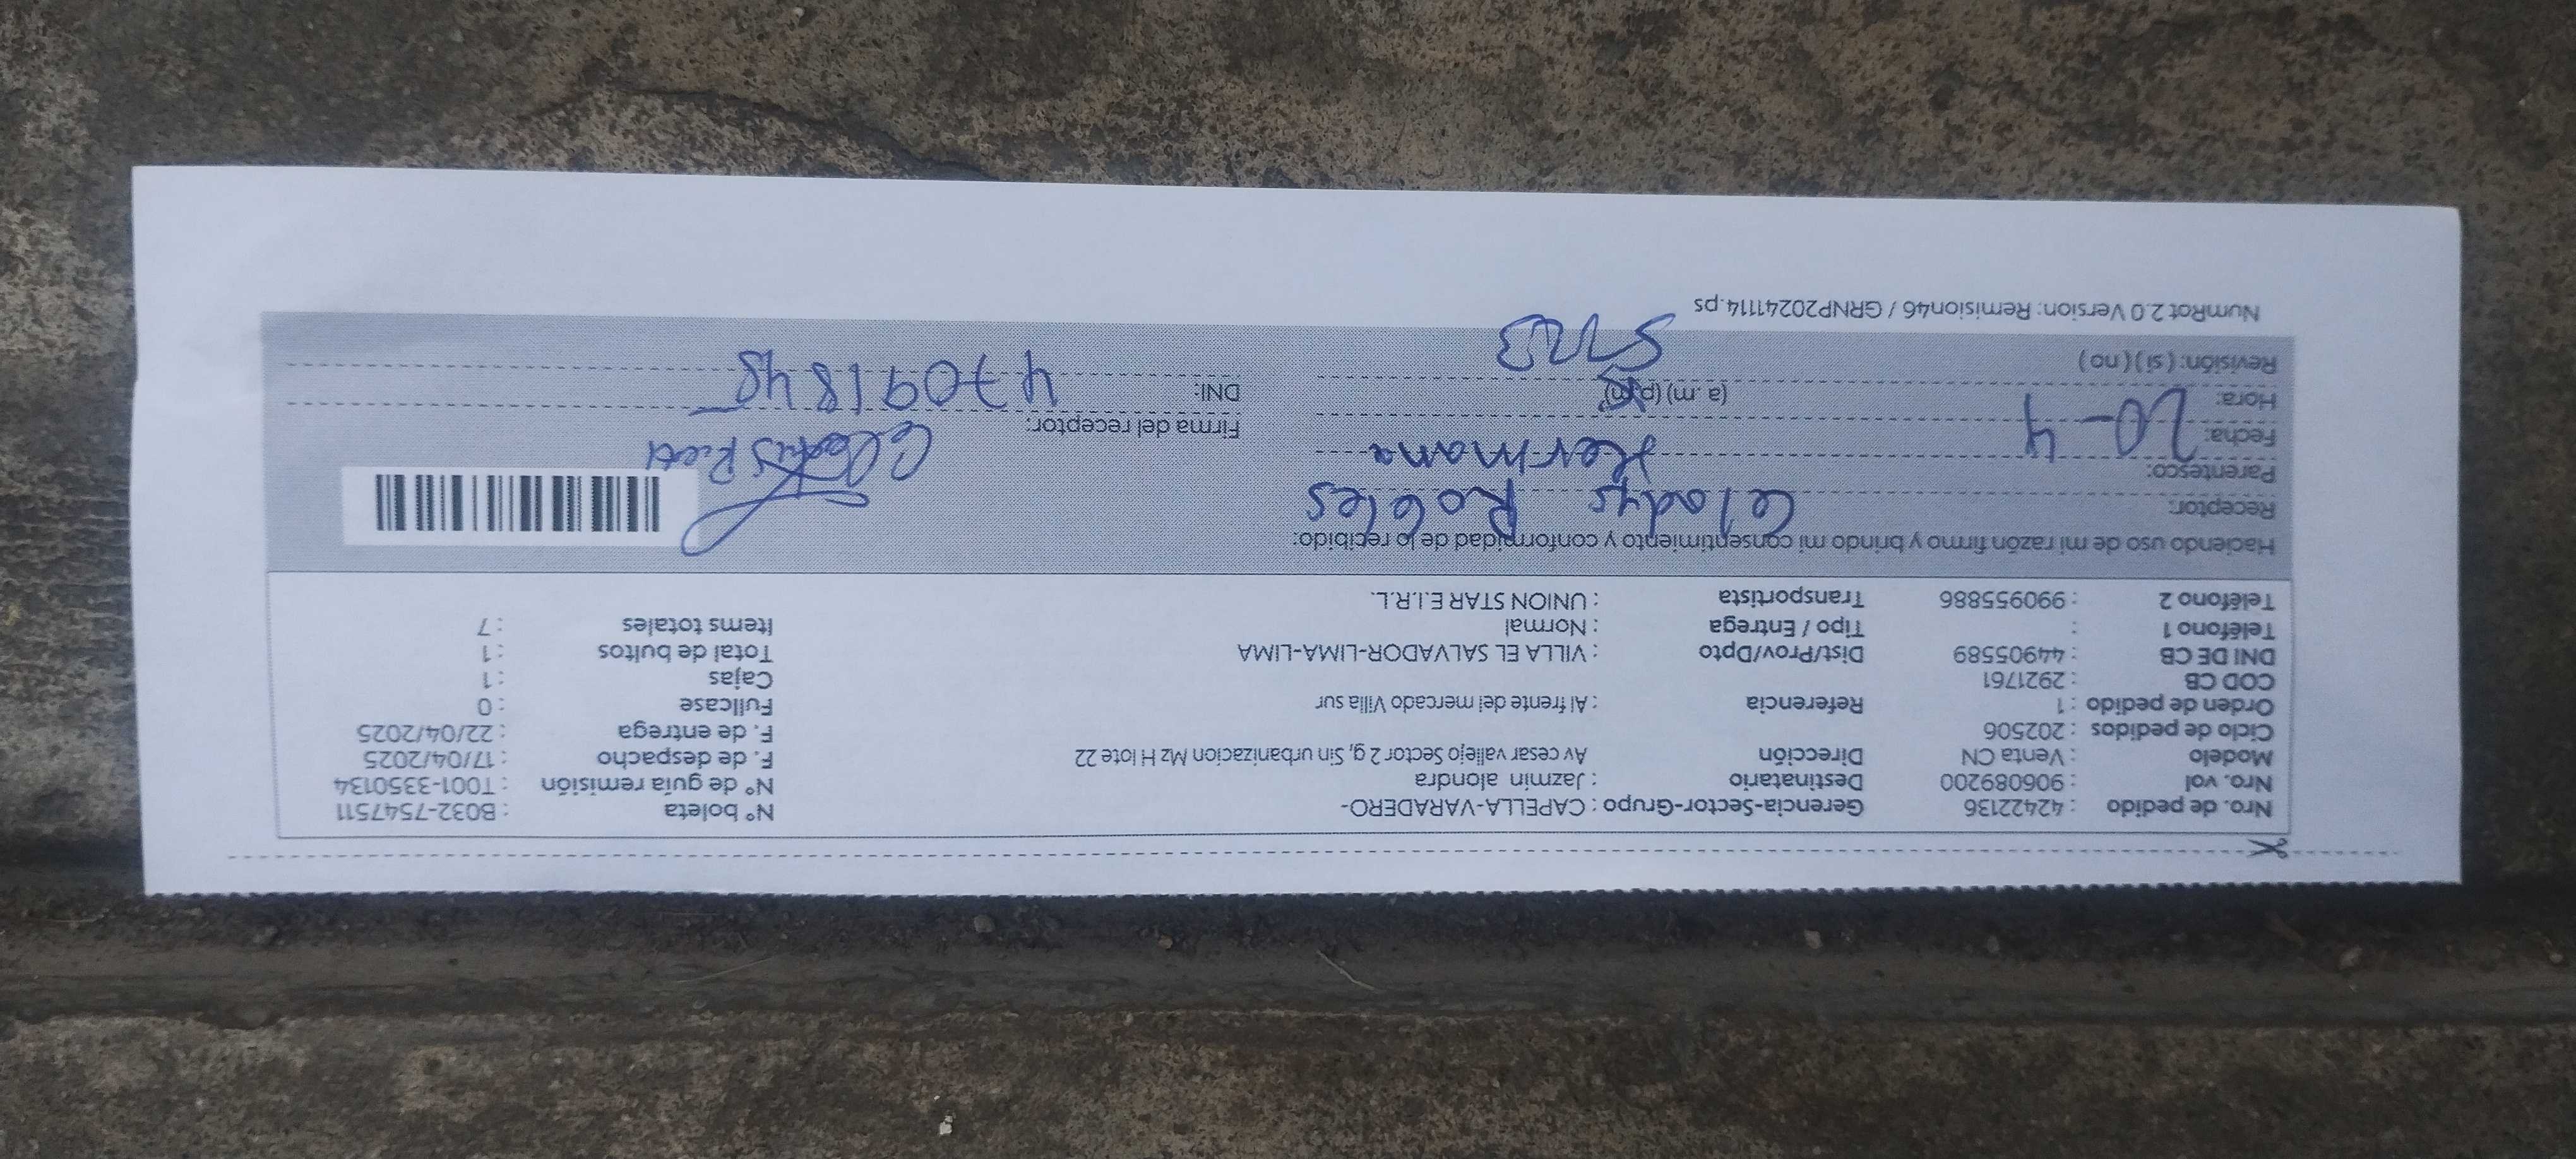 Nro. de pedido : 42422136 Gerencia-Sector-Grupo : CAPELLA-VARADERO- N° boleta : B032-7547511
Nro. vol : 906089200 Destinatario : Jazmin alondra N° de guía remisión : T001-3350134
Modelo : Venta CN Dirección Av cesar vallejo Sector 2 g, Sin urbanizacion Mz H lote 22 F. de despacho : 17/04/2025
Ciclo de pedidos : 202506 F. de entrega : 22/04/2025
Orden de pedido : 1 Referencia : Al frente del mercado Villa sur Fullcase : 0
COD CB : 2921761 Cajas : 1
DNI DE CB : 44905589 Dist/Prov/Dpto : VILLA EL SALVADOR-LIMA-LIMA Total de bultos : 1
Teléfono 1 : Tipo / Entrega : Normal Items totales : 7
Teléfono 2 : 990955886 Transportista : UNION STAR E.I.R.L.
Haciendo uso de mi razón firmo y brindo mi consentimiento y conformidad de lo recibido:
Receptor: Gladys Robles
Parentesco: Hermana
Fecha: 20-4 Firma del receptor:
Hora: (a. m) (p. m) DNI: 47091845
Revisión: ( si ) ( no )
NumRot 2.0 Version: Remision46 / GRNP20241114.ps